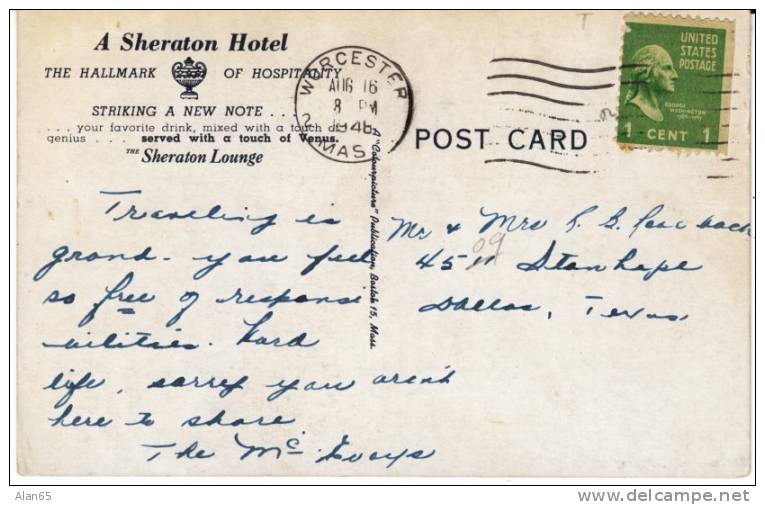 A Sheraton Hotel
THE HALLMARK OF HOSPITALITY
STRIKING A NEW NOTE . . .
. . . your favorite drink, mixed with a touch of
genius . . . served with a touch of Venus.
THE Sheraton Lounge
WORCESTER
AUG 16
8 PM
2
MASS
UNITED
STATES
POSTAGE
GEORGE
WASHINGTON
1 CENT 1
POST CARD
A "Colourpicture" Publication, Boston 15, Mass.
Traveling is
grand - you feel
so free of respons
ibilities. Hard
life, sorry you aren't
here to share
The McEvoys
Mr & Mrs
45 Stanhope
09
Dallas, Texas
Alan65
www.delcampe.net